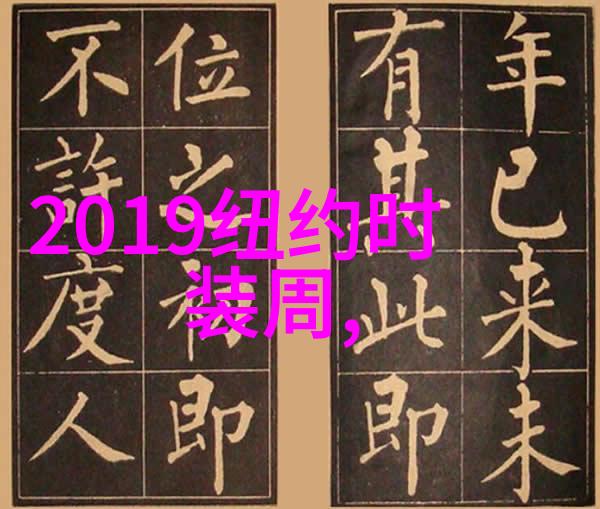 2019纽约时
装周,
年已来未
有其此即
位之初即
不許度人